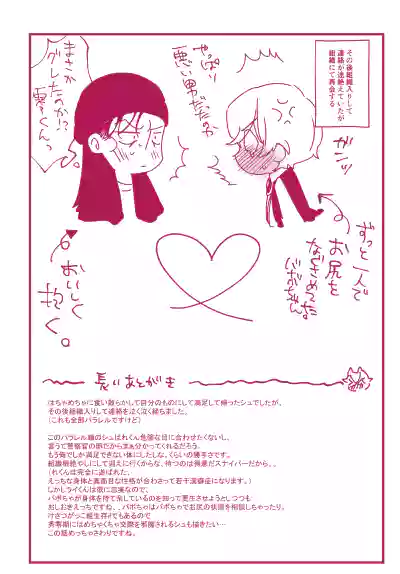 その後組織入りして
連絡が途絶えていたが
組織にて再会する
ガンッ
やっぱり
悪い男だったのか
まさか
グレたのか!?
零くんっ
ずっと一人で
お尻を
なぐさめてた。
バボちゃん
おいしく
抱く。
長いあとがき
はちゃめちゃに食い散らかして自分のものにして満足して帰ったシュでしたが、
その後組織入りして連絡を泣く泣く絶ちました。
(これも全部パラレルですけど)
このパラレル軸のシュはれくん危険な目に合わせたくないし、
言うて警察官の卵だからまあ分かってくれるだろう。
もう俺でしか満足できない体にしたしな、くらいの勝手さです。
組織根絶やしにして迎えに行くからな、待つのは得意だスナイパーだから。。
(れくんは完全に遊ばれた、
えっちな身体と真面目な性格が合わさって若干潔癖症になります。)
しかしライくんは欲に忠実なので、
バボちゃんが身体を持て余しているのを知って更生させようとしつつも
おしおきえっちですね、、バボちゃんはバボちゃんでお尻の状態を相談しちゃったり。
けさつがっこ組生存ifでもあるので
秀零期にはめちゃくちゃ交際を邪魔されるシュも描きたい…
この話めっちゃさわりですね。